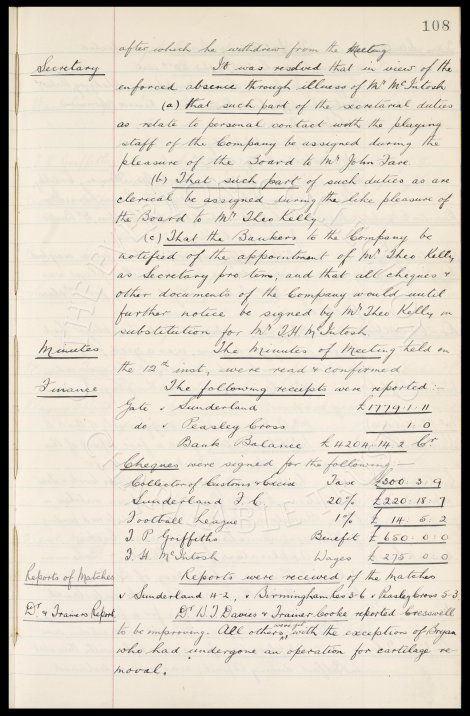 108
after which he withdrew from the Meeting
Secretary It was resolved that in view of the
enforced absence through illness of Mr McIntosh
(a) that such part of the secretarial duties
as relate to personal contact with the playing
staff of the Company be assigned during the
pleasure of the Board to Mr John Fare.
(b) That such part of such duties as are
clerical be assigned during the like pleasure of
the Board to Mr Theo Kelly.
(c) That the Bankers to the Company be
notified of the appointment of Mr Theo Kelly
as Secretary pro tem; and that all cheques &
other documents of the Company would until
further notice be signed by Mr Theo Kelly in
substitution for Mr T.H. McIntosh.
Minutes The Minutes of Meeting held on
the 12th inst, were read & confirmed
Finance The following receipts were reported:-
Gate v Sunderland £1779.1.11
do v Peasley Cross 1.0
Bank Balance £4204.14.2 Cr
Cheques were signed for the following:-
Collector of Customs & Excise Tax £300.3.9
Sunderland F.C. 20% £220.18.7
Football League 1% £14.5.2
T.P. Griffiths Benefit £650.0.0
T.H. McIntosh Wages £275.0.0
Reports of Matches Reports were received of the Matches
v Sunderland 4-2, v Birmingham Res 3-6 v Peasley Cross 5-3
Dr & Trainers Report Dr W.J. Davies & Trainer Cooke reported Cresswell
to be improving. All others were fit, with the exception of Bryan
who had undergone an operation for cartilage re-
moval.